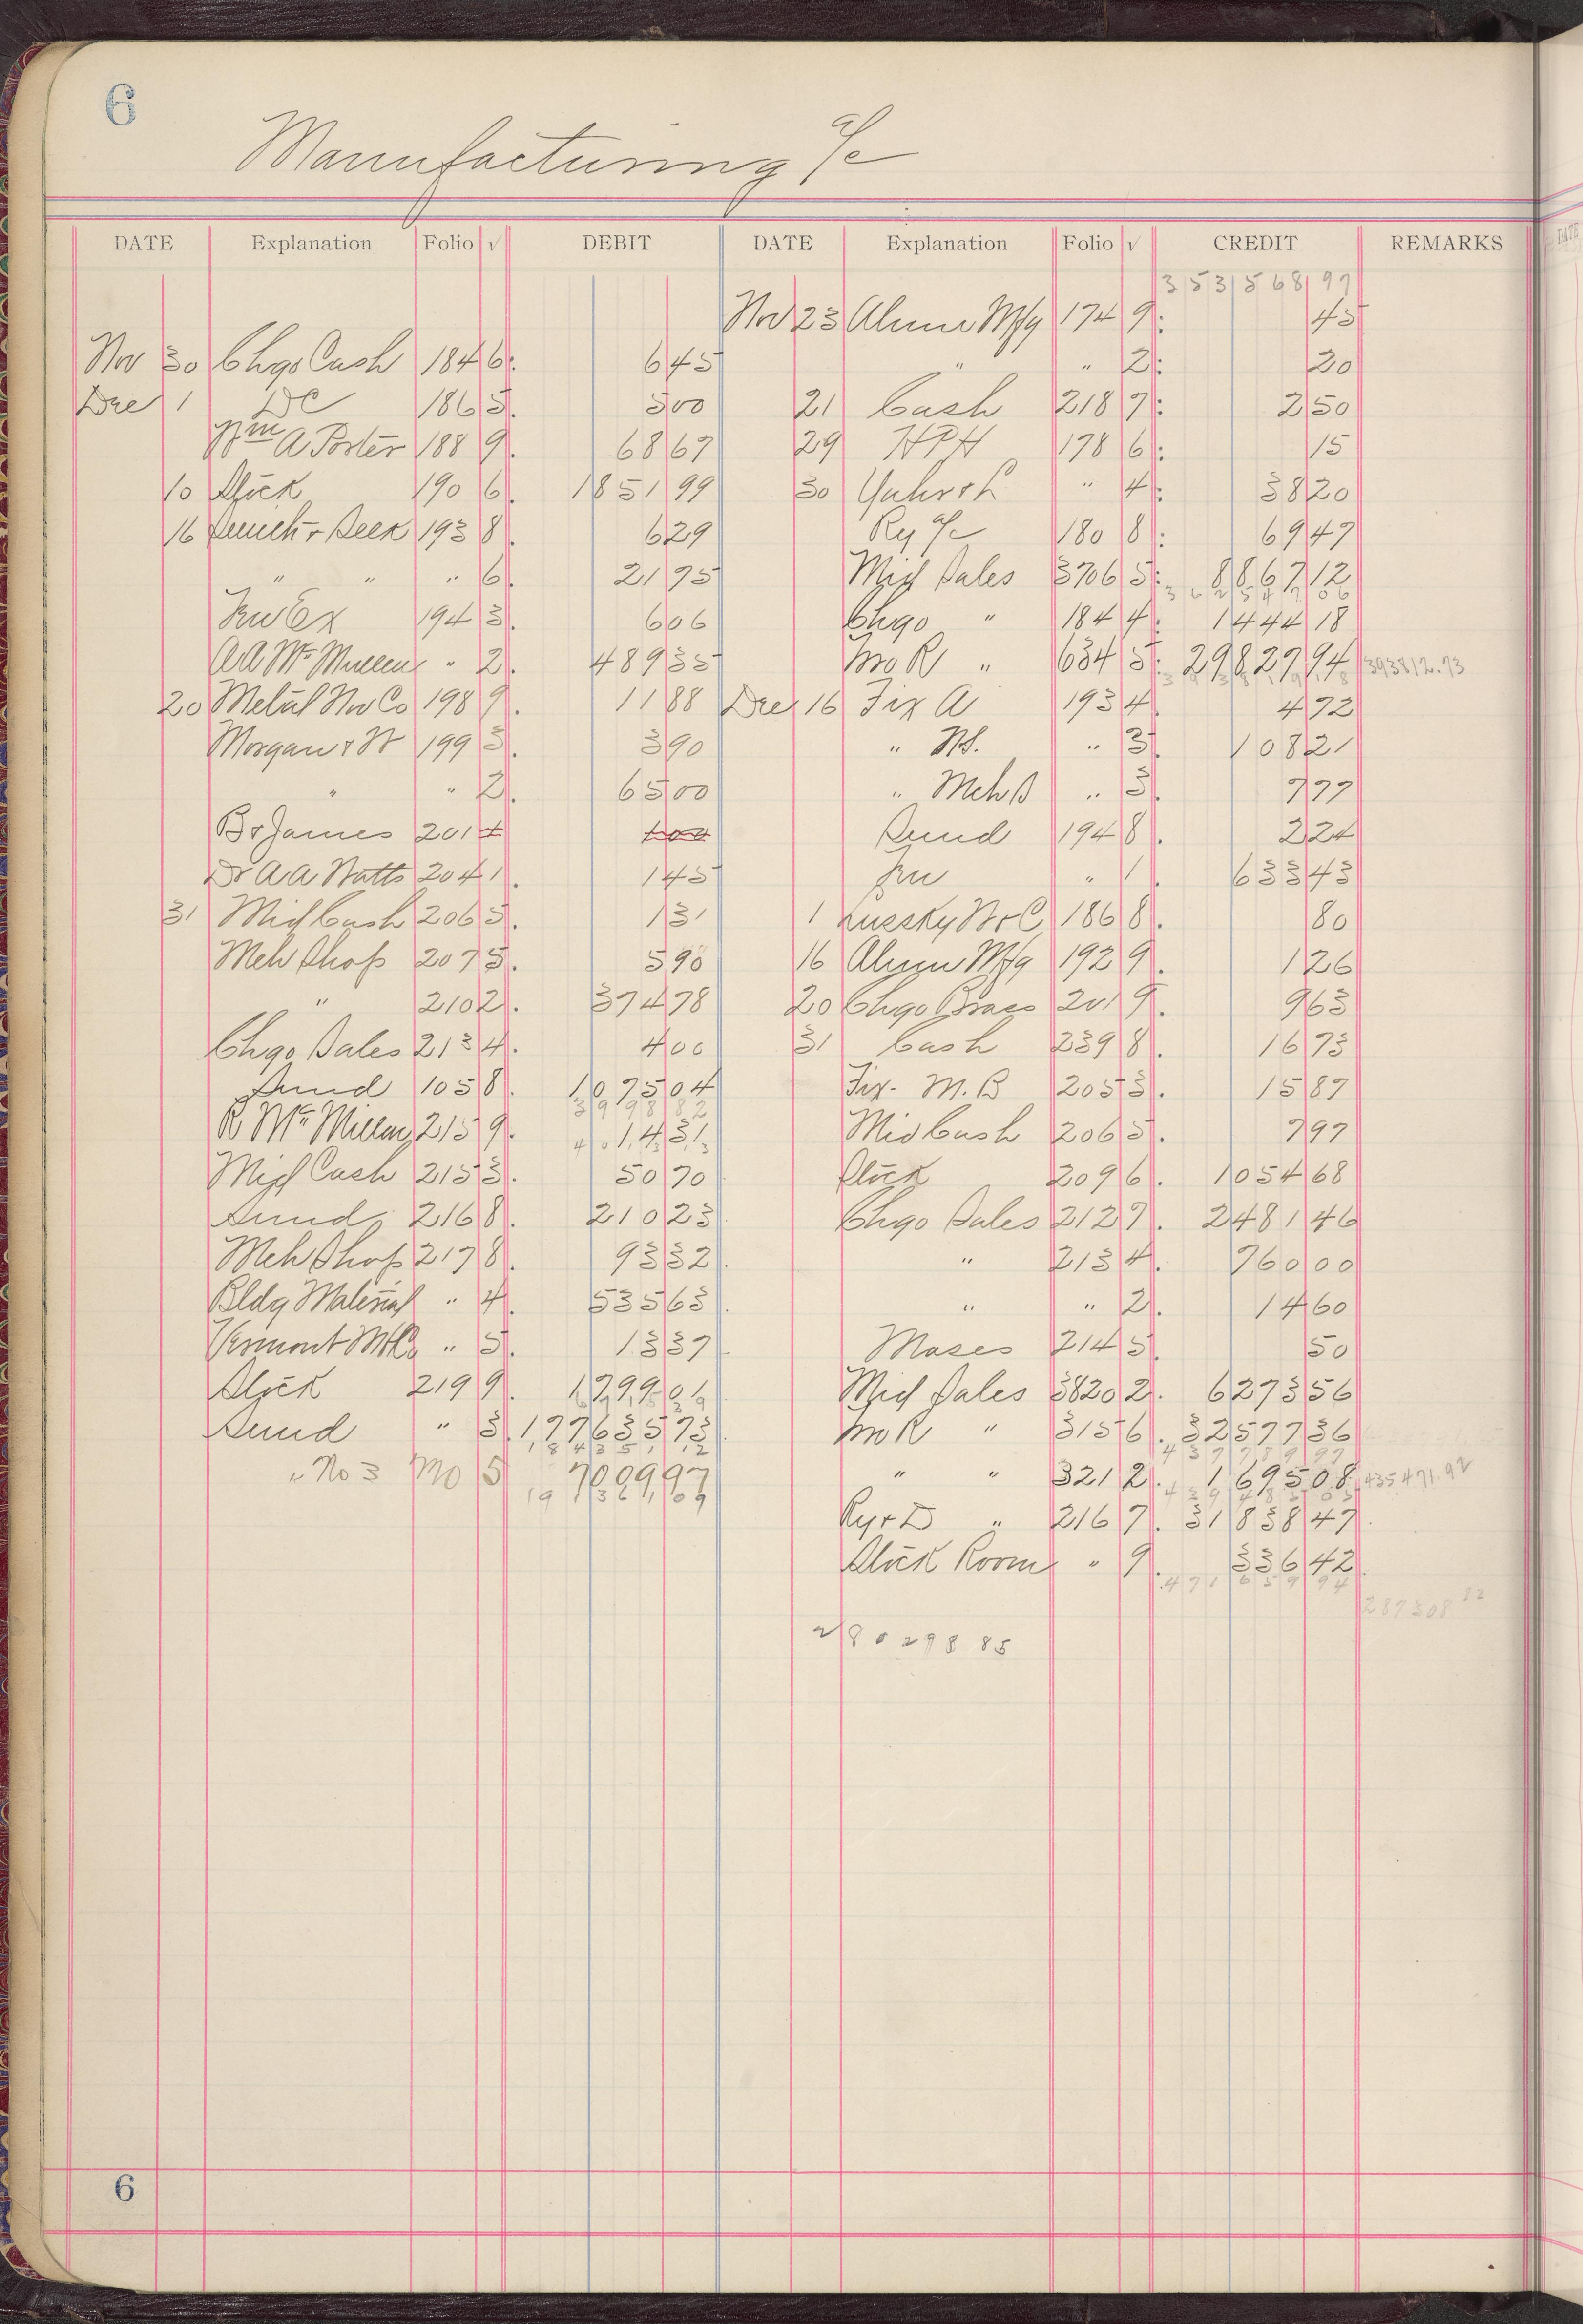 6
Manufacturing a/c
DATE Explanation Folio √ DEBIT DATE Explanation Folio √ CREDIT REMARKS
353 568 97
Nov 23 Alum Mfg 174 9 45
Nov 30 Chgo Cash 184 6 6 45 " " 2 20
Dec 1 Do 186 5 5 00 21 Cash 218 7 2 50
Wm A Porter 188 9 68 67 29 HPH 178 6 15
10 Stock 190 6 1851 99 30 " 4 38 20
16 193 8 6 29 Ry a/c 180 8 69 47
" " " 6 21 75 Mid Sales 370 6 5 8867 12
3625 4706
194 3 6 06 Chgo " 184 4 1444 18
A A McMullen " 2 489 35 Mo R " 634 5 29827 94 393812.73
20 Metal Nov Co 198 9 11 88 Dec 16 Fix A 193 4 4 72
Morgan & W 199 3 3 90 " N.S. " 3 108 21
" " 2 65 00 " Mch B " 3 7 77
B & James 201 4 4 00 Sund 194 8 2 24
Dr A A Watts 204 1 1 45 " 1 633 43
31 Mid Cash 206 5 1 31 1 186 8 80
Mch Shop 207 5 5 90 16 Alum Mfg 192 9 1 26
" 210 2 374 78 20 Chgo Brass 201 9 9 63
Chgo Sales 213 4 4 00 31 Cash 239 8 16 73
Sund 105 8 1075 04 Fix. M.B 205 3 15 87
3998 82
R McMillan 215 9 14 31 Mid Cash 206 5 7 97
Mid Cash 215 3 50 70 Stock 209 6 1054 68
Sund 216 8 210 23 Chgo Sales 212 7 2481 46
Mch Shop 217 8 93 32 " 213 4 760 00
Bldg Material " 4 535 63 " " 2 14 60
Vermont M Co " 5 13 37 Moses 214 5 50
Stock 219 9 1799 01 Mid Sales 3820 2 6273 56
Sund " 3 177635 73 Mo R " 315 6 32577 36
184351 12
" No 3 Mo 5 7009 97 " " 321 2 1695 08 435471.92
191361 09
Ry & D " 216 7 31838 47
Stock Room " 9 336 42
471659 94
287308 82
280298 85
6